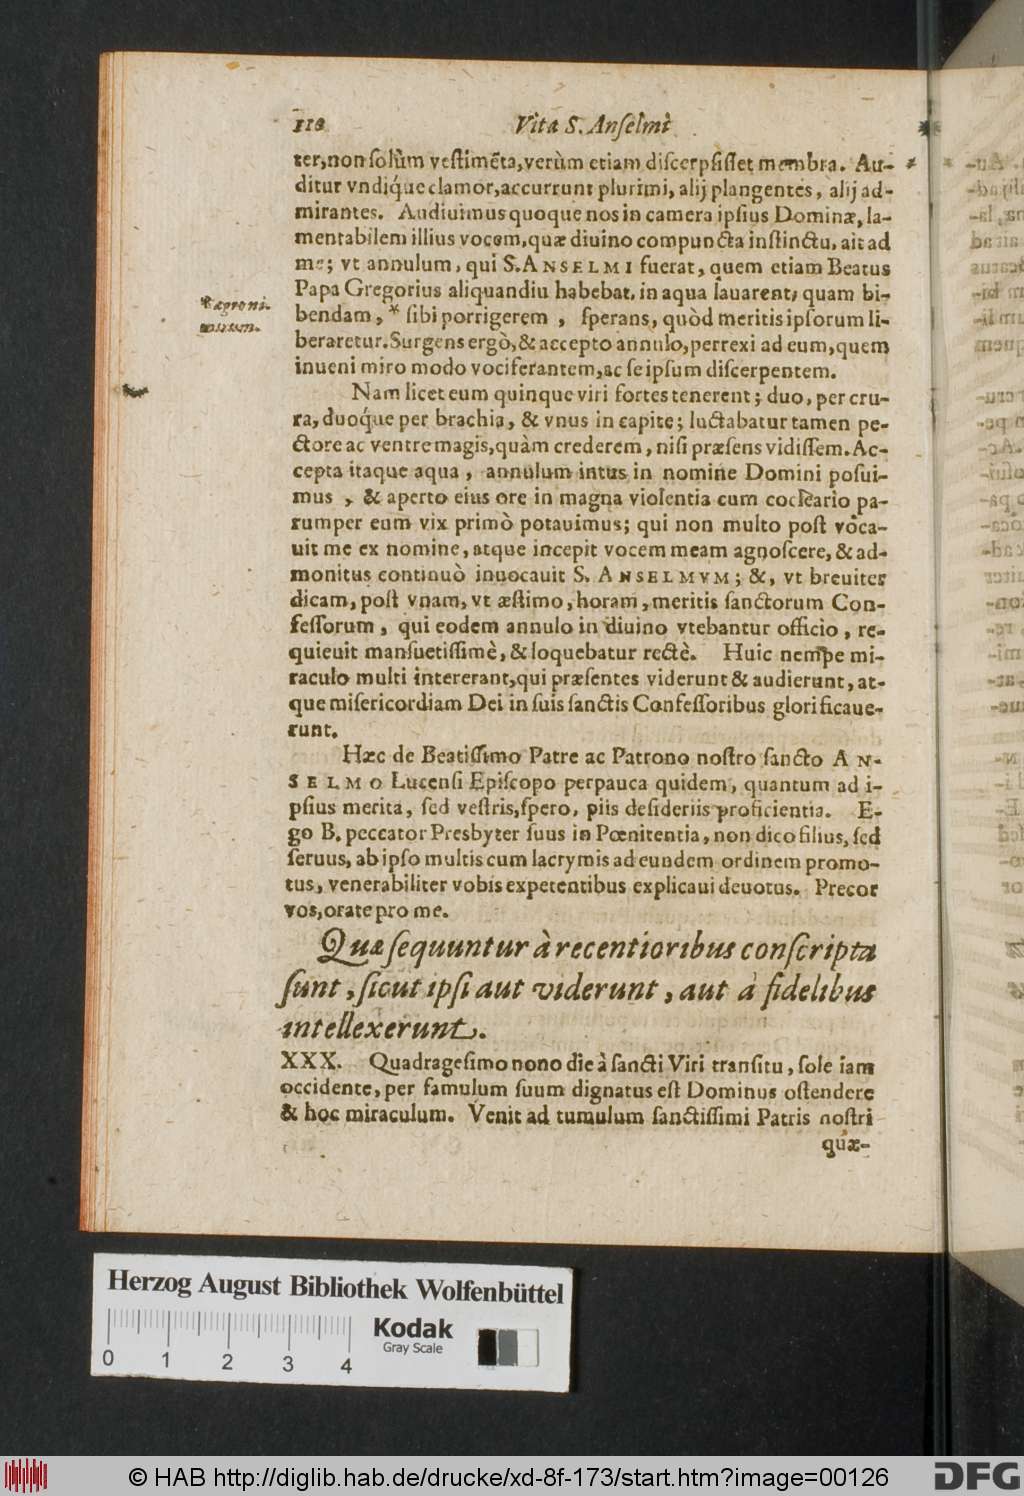 118 Vita S. Anſelmi
ter, non ſolùm veſtimẽta, verùm etiam diſcerpſiſſet membra. Au-
ditur vndiq́ue clamor, accurrunt plurimi, alij plangentes, alij ad-
mirantes. Audiuimus quoque nos in camera ipſius Dominæ, la-
mentabilem illius vocem, quæ diuino compuncta inſtinctu, ait ad
me; vt annulum, qui S. ANSELMI fuerat, quem etiam Beatus
Papa Gregorius aliquandiu habebat, in aqua lauarent, quam bi-
bendam, * ſibi porrigerem, ſperans, quòd meritis ipſorum li-
beraretur. Surgens ergò, & accepto annulo, perrexi ad eum, quem
inueni miro modo vociferantem, ac ſe ipſum diſcerpentem.
Nam licet eum quinque viri fortes tenerent; duo, per cru-
ra, duoq́ue per brachia, & vnus in capite; luctabatur tamen pe-
ctore ac ventre magis, quàm crederem, niſi præſens vidiſſem. Ac-
cepta itaque aqua, annulum intus in nomine Domini poſui-
mus, & aperto eius ore in magna violentia cum cocleario pa-
rumper eum vix primò potauimus; qui non multo poſt voca-
uit me ex nomine, atque incepit vocem meam agnoſcere, & ad-
monitus continuò inuocauit S. ANSELMVM; &, vt breuiter
dicam, poſt vnam, vt æſtimo, horam, meritis ſanctorum Con-
feſſorum, qui eodem annulo in diuino vtebantur officio, re-
quieuit manſuetiſſimè, & loquebatur rectè. Huic nempe mi-
raculo multi intererant, qui præſentes viderunt & audierunt, at-
que miſericordiam Dei in ſuis ſanctis Confeſſoribus glorificaue-
runt.
Hæc de Beatiſſimo Patre ac Patrono noſtro ſancto AN-
SELMO Lucenſi Epiſcopo perpauca quidem, quantum ad i-
pſius merita, ſed veſtris, ſpero, piis deſideriis proficientia. E-
go B. peccator Presbyter ſuus in Pœnitentia, non dico filius, ſed
ſeruus, ab ipſo multis cum lacrymis ad eundem ordinem promo-
tus, venerabiliter vobis expetentibus explicaui deuotus. Precor
vos, orate pro me.
Quæ ſequuntur à recentioribus conſcripta
ſunt, ſicut ipſi aut viderunt, aut à fidelibus
intellexerunt.
XXX. Quadrageſimo nono die à ſancti Viri tranſitu, ſole iam
occidente, per famulum ſuum dignatus eſt Dominus oſtendere
& hoc miraculum. Venit ad tumulum ſanctiſſimi Patris noſtri
quæ-
Herzog August Bibliothek Wolfenbüttel
0 1 2 3 4
Kodak
Gray Scale
© HAB http://diglib.hab.de/drucke/xd-8f-173/start.htm?image=00126
DFG